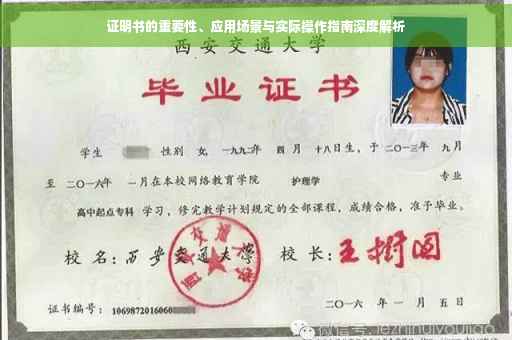 证明书的重要性、应用场景与实际操作指南深度解析
西安交通大学
毕业证书
学生 性别 女,一九九二年 四 月 十八日生,于二〇一三年 九月
至 二〇一六年 一月在本校网络教育学院 护理学 专业
高中起点专科 学习,修完教学计划规定的全部课程,成绩合格,准予毕业。
校 名:西安交通大学 校 长:王树国
证书编号:1069872016060
二〇一六 年 一 月 五 日
微信号:jiezhinuyoujiao